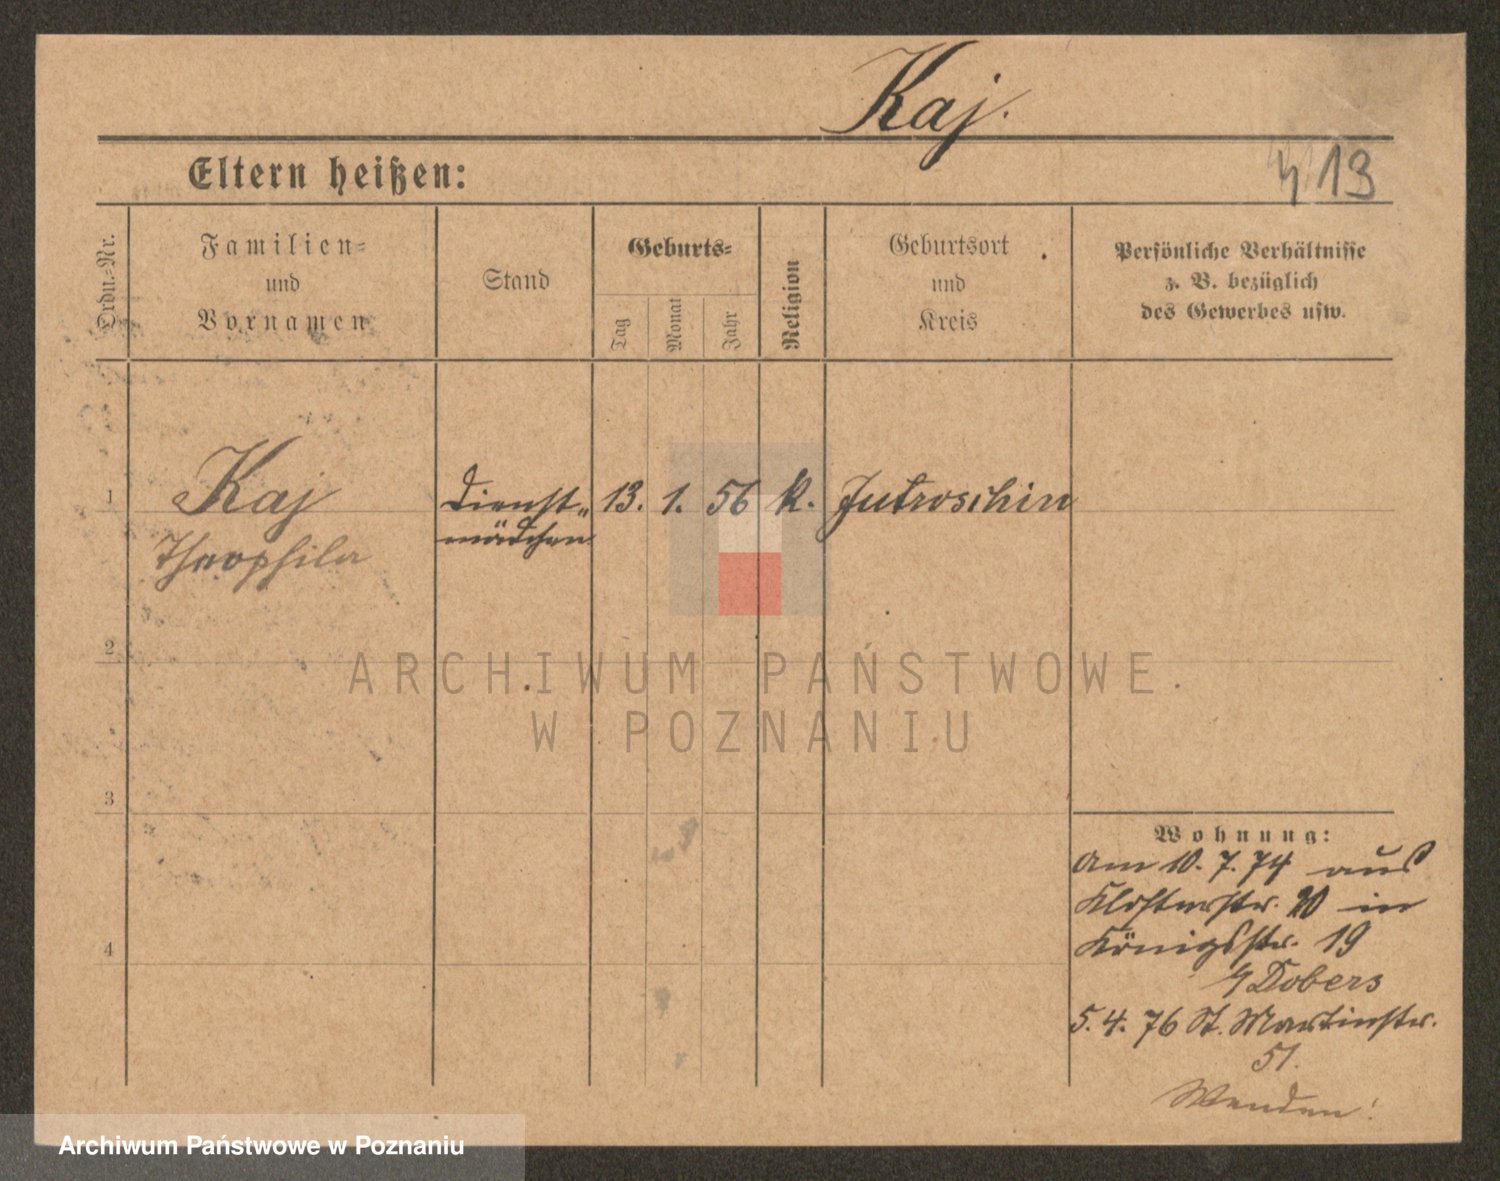 Kaj.
Eltern heißen:
4 13
Ordn.-Nr.
Familien-
und
Vornamen
Stand
Geburts-
Tag
Monat
Jahr
Religion
Geburtsort
und
Kreis
Persönliche Verhältnisse
z. B. bezüglich
des Gewerbes usw.
1 Kaj Dienst- 13. 1. 56 k. Jutroschin
Theophila mädchen
2
ARCHIWUM PAŃSTWOWE
W POZNANIU
3
Wohnung:
Am 10. 7. 74 aus
Klosterstr. 20 in
4 Königsstr. 19
b/ Dobers
5. 4. 76 St. Martinstr.
51.
Wenden!
Archiwum Państwowe w Poznaniu